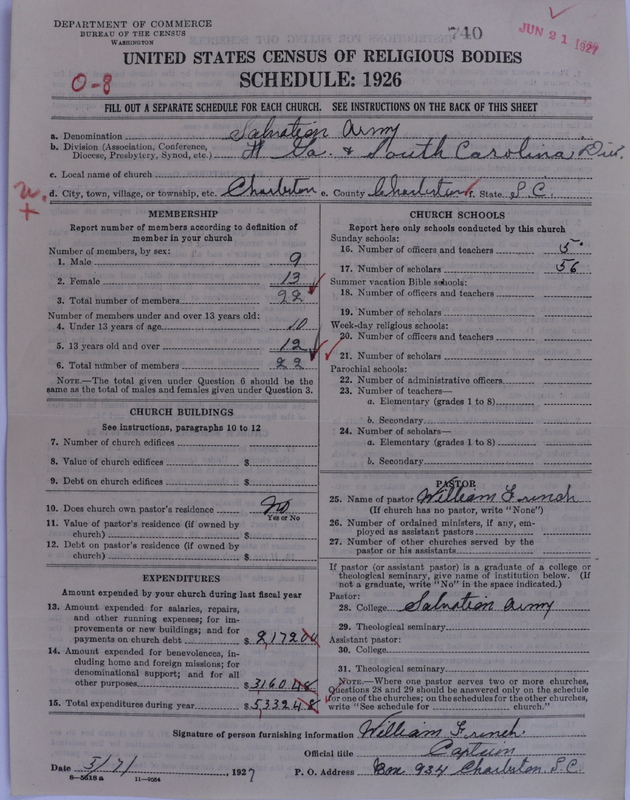 DEPARTMENT OF COMMERCE
BUREAU OF THE CENSUS
WASHINGTON
740
JUN 21 1927
UNITED STATES CENSUS OF RELIGIOUS BODIES
SCHEDULE: 1926
0-8
FILL OUT A SEPARATE SCHEDULE FOR EACH CHURCH. SEE INSTRUCTIONS ON THE BACK OF THIS SHEET
a. Denomination Salvation Army
b. Division (Association, Conference, Diocese, Presbytery, Synod, etc.) Ga. & South Carolina Div.
c. Local name of church
d. City, town, village, or township, etc. Charleston e. County Charleston f. State S.C.
MEMBERSHIP
Report number of members according to definition of member in your church
Number of members, by sex:
1. Male 9
2. Female 13
3. Total number of members 22
Number of members under and over 13 years old:
4. Under 13 years of age 10
5. 13 years old and over 12
6. Total number of members 22
NOTE.—The total given under Question 6 should be the same as the total of males and females given under Question 3.
CHURCH BUILDINGS
See instructions, paragraphs 10 to 12
7. Number of church edifices
8. Value of church edifices $
9. Debt on church edifices $
10. Does church own pastor's residence No
Yes or No
11. Value of pastor's residence (if owned by church) $
12. Debt on pastor's residence (if owned by church) $
EXPENDITURES
Amount expended by your church during last fiscal year
13. Amount expended for salaries, repairs, and other running expenses; for improvements or new buildings; and for payments on church debt $ 2,172 00
14. Amount expended for benevolences, including home and foreign missions; for denominational support; and for all other purposes $ 3160 48
15. Total expenditures during year $ 5,332 48
CHURCH SCHOOLS
Report here only schools conducted by this church
Sunday schools:
16. Number of officers and teachers 5
17. Number of scholars 56
Summer vacation Bible schools:
18. Number of officers and teachers
19. Number of scholars
Week-day religious schools:
20. Number of officers and teachers
21. Number of scholars
Parochial schools:
22. Number of administrative officers
23. Number of teachers—
a. Elementary (grades 1 to 8)
b. Secondary
24. Number of scholars—
a. Elementary (grades 1 to 8)
b. Secondary
PASTOR
25. Name of pastor William French
(If church has no pastor, write "None")
26. Number of ordained ministers, if any, employed as assistant pastors
27. Number of other churches served by the pastor or his assistants
If pastor (or assistant pastor) is a graduate of a college or theological seminary, give name of institution below. (If not a graduate, write "No" in the space indicated.)
Pastor:
28. College Salvation Army
29. Theological seminary
Assistant pastor:
30. College
31. Theological seminary
NOTE.—Where one pastor serves two or more churches, Questions 28 and 29 should be answered only on the schedule for one of the churches; on the schedules for the other churches, write "See schedule for ______ church."
Signature of person furnishing information William French
Official title Captain
Date 3/7/, 1927 P. O. Address Box 934 Charleston S.C.
8-5618a 11-9084